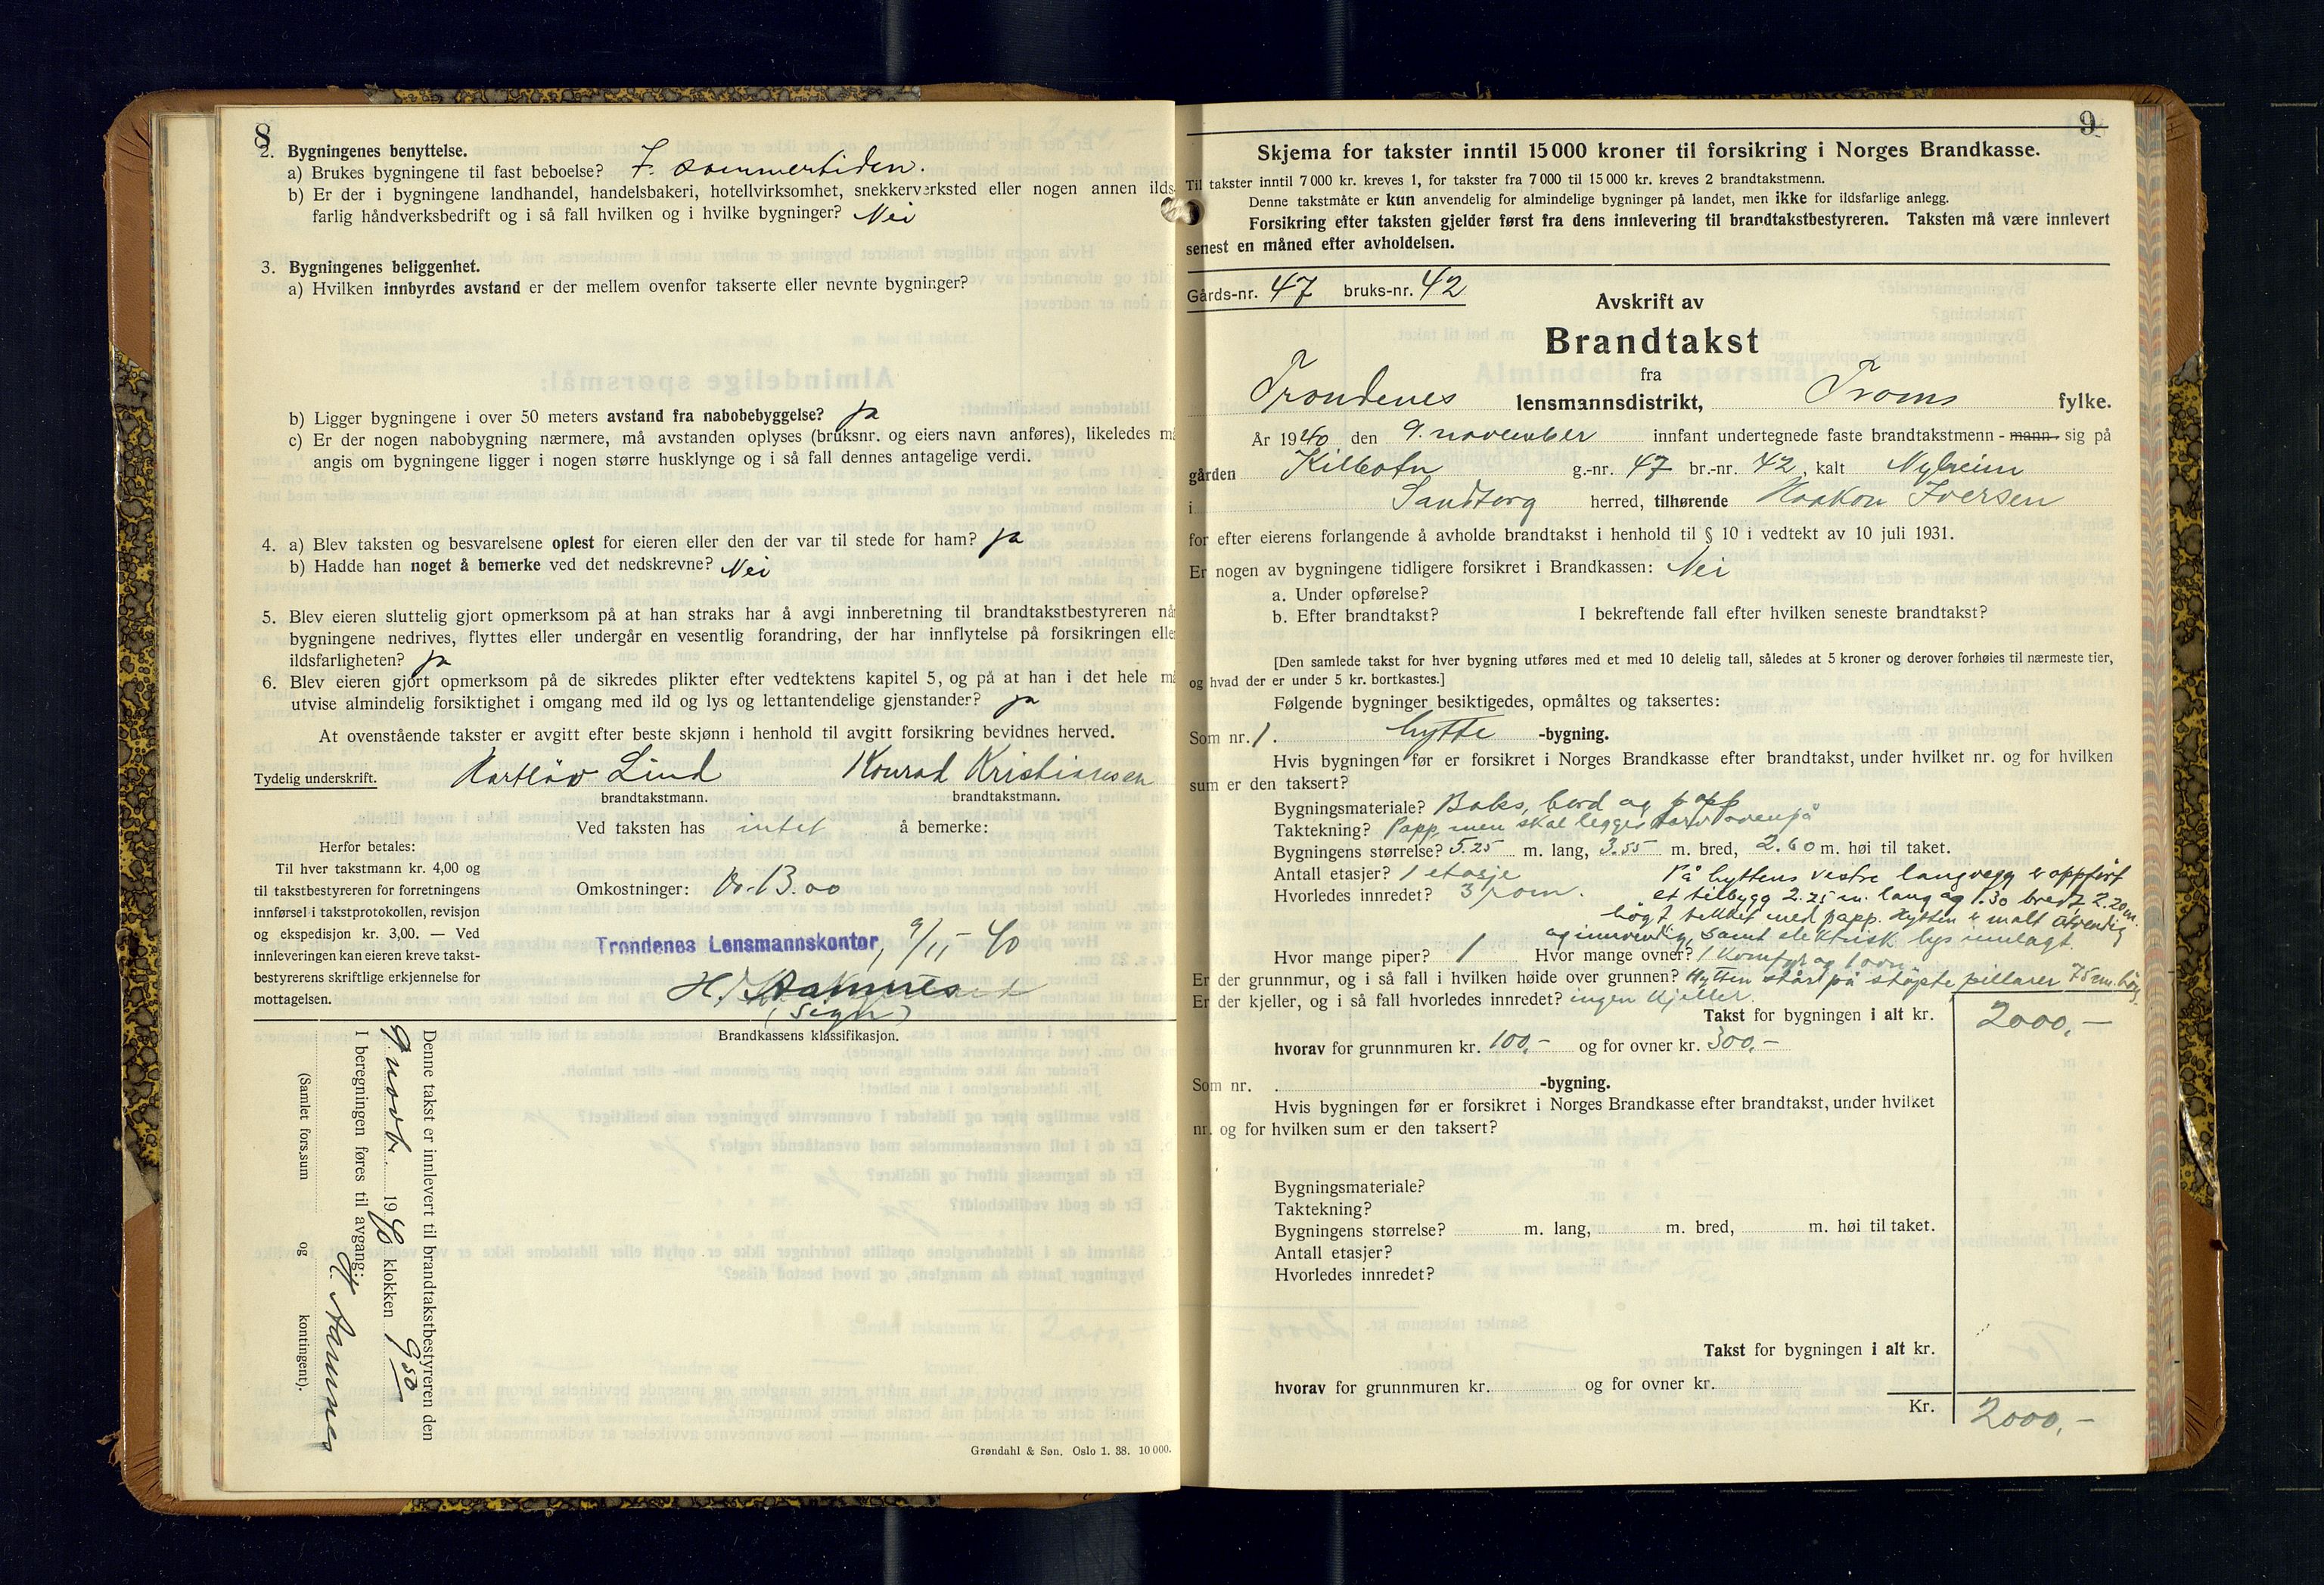 8
2. Bygningenes benyttelse.
a) Brukes bygningene til fast beboelse? I. sommertiden.
b) Er der i bygningene landhandel, handelsbakeri, hotellvirksomhet, snekkerverksted eller nogen annen ilds-
farlig håndverksbedrift og i så fall hvilken og i hvilke bygninger? Nei
3. Bygningenes beliggenhet.
a) Hvilken innbyrdes avstand er der mellem ovenfor takserte eller nevnte bygninger?
b) Ligger bygningene i over 50 meters avstand fra nabobebyggelse? ja
c) Er der nogen nabobygning nærmere, må avstanden oplyses (bruksnr. og eiers navn anføres), likeledes må
angis om bygningene ligger i nogen større husklynge og i så fall dennes antagelige verdi.
4. a) Blev taksten og besvarelsene oplest for eieren eller den der var til stede for ham? ja
b) Hadde han noget å bemerke ved det nedskrevne? Nei
5. Blev eieren sluttelig gjort opmerksom på at han straks har å avgi innberetning til brandtakstbestyreren når
bygningene nedrives, flyttes eller undergår en vesentlig forandring, der har innflytelse på forsikringen eller
ildsfarligheten? ja
6. Blev eieren gjort opmerksom på de sikredes plikter efter vedtektens kapitel 5, og på at han i det hele må
utvise almindelig forsiktighet i omgang med ild og lys og lettantendelige gjenstander? ja
At ovenstående takster er avgitt efter beste skjønn i henhold til avgitt forsikring bevidnes herved.
Tydelig underskrift. Lind Konrad Kristiansen
brandtakstmann. brandtakstmann.
Ved taksten has intet å bemerke:
Herfor betales:
Til hver takstmann kr. 4,00 og
til takstbestyreren for forretningens
innførsel i takstprotokollen, revisjon
og ekspedisjon kr. 3,00. — Ved
innleveringen kan eieren kreve takst-
bestyrerens skriftlige erkjennelse for
mottagelsen.
Omkostninger: 13.00
Trondenes Lensmannskontor, 9/11-40
H. Aamnes
(sign)
Brandkassens klassifikasjon.
Denne takst er innlevert til brandtakstbestyreren den
9 novbr. 1940 klokken 9 50
I beregningen føres til avgang:
H. Aamnes
(Samlet fors.sum og kontingent).
Grøndahl & Søn. Oslo 1. 38. 10 000.
9
Skjema for takster inntil 15 000 kroner til forsikring i Norges Brandkasse.
Til takster inntil 7 000 kr. kreves 1, for takster fra 7 000 til 15 000 kr. kreves 2 brandtakstmenn.
Denne takstmåte er kun anvendelig for almindelige bygninger på landet, men ikke for ildsfarlige anlegg.
Forsikring efter taksten gjelder først fra dens innlevering til brandtakstbestyreren. Taksten må være innlevert
senest en måned efter avholdelsen.
Gårds-nr. 47 bruks-nr. 42
Avskrift av
Brandtakst
fra
Trondenes lensmannsdistrikt, Troms fylke.
År 1940 den 9. november innfant undertegnede faste brandtakstmenn - mann - sig på
gården Kilbotn g.-nr. 47 br.-nr. 42, kalt Nyheim
i Sandtorg herred, tilhørende Haakon Iversen
for efter eierens forlangende å avholde brandtakst i henhold til § 10 i vedtekt av 10 juli 1931.
Er nogen av bygningene tidligere forsikret i Brandkassen: Nei
a. Under opførelse?
b. Efter brandtakst? I bekreftende fall efter hvilken seneste brandtakst?
[Den samlede takst for hver bygning utføres med et med 10 delelig tall, således at 5 kroner og derover forhøies til nærmeste tier,
og hvad der er under 5 kr. bortkastes.]
Følgende bygninger besiktigedes, opmåltes og taksertes:
Som nr. 1. hytte -bygning.
Hvis bygningen før er forsikret i Norges Brandkasse efter brandtakst, under hvilket nr. og for hvilken
sum er den taksert?
Bygningsmateriale? Baks, bord og papp
Taktekning? Papp, men skal legges torv ovenpå
Bygningens størrelse? 5.25 m. lang, 3.55 m. bred, 2.60 m. høi til taket.
Antall etasjer? 1 etasje På hyttens vestre langvegg er oppført
Hvorledes innredet? 3 rom. et tilbygg 2.25 m. lang og 1.30 bredt, 2.20 m.
høgt, tekket med papp. Hytten er malt utvendig
og innvendig, samt elektrisk lys innlagt.
Hvor mange piper? 1 Hvor mange ovner? 1 Komfyr og 1 ovn
Er der grunnmur, og i så fall i hvilken høide over grunnen? Hytten står på støpte pillarer 75 cm. høy.
Er der kjeller, og i så fall hvorledes innredet? ingen kjeller.
Takst for bygningen i alt kr. 2000,-
hvorav for grunnmuren kr. 100,- og for ovner kr. 300,-
Som nr. -bygning.
Hvis bygningen før er forsikret i Norges Brandkasse efter brandtakst, under hvilket
nr. og for hvilken sum er den taksert?
Bygningsmateriale?
Taktekning?
Bygningens størrelse? m. lang, m. bred, m. høi til taket.
Antall etasjer?
Hvorledes innredet?
Takst for bygningen i alt kr.
hvorav for grunnmuren kr. og for ovner kr.
Kr. 2000,-